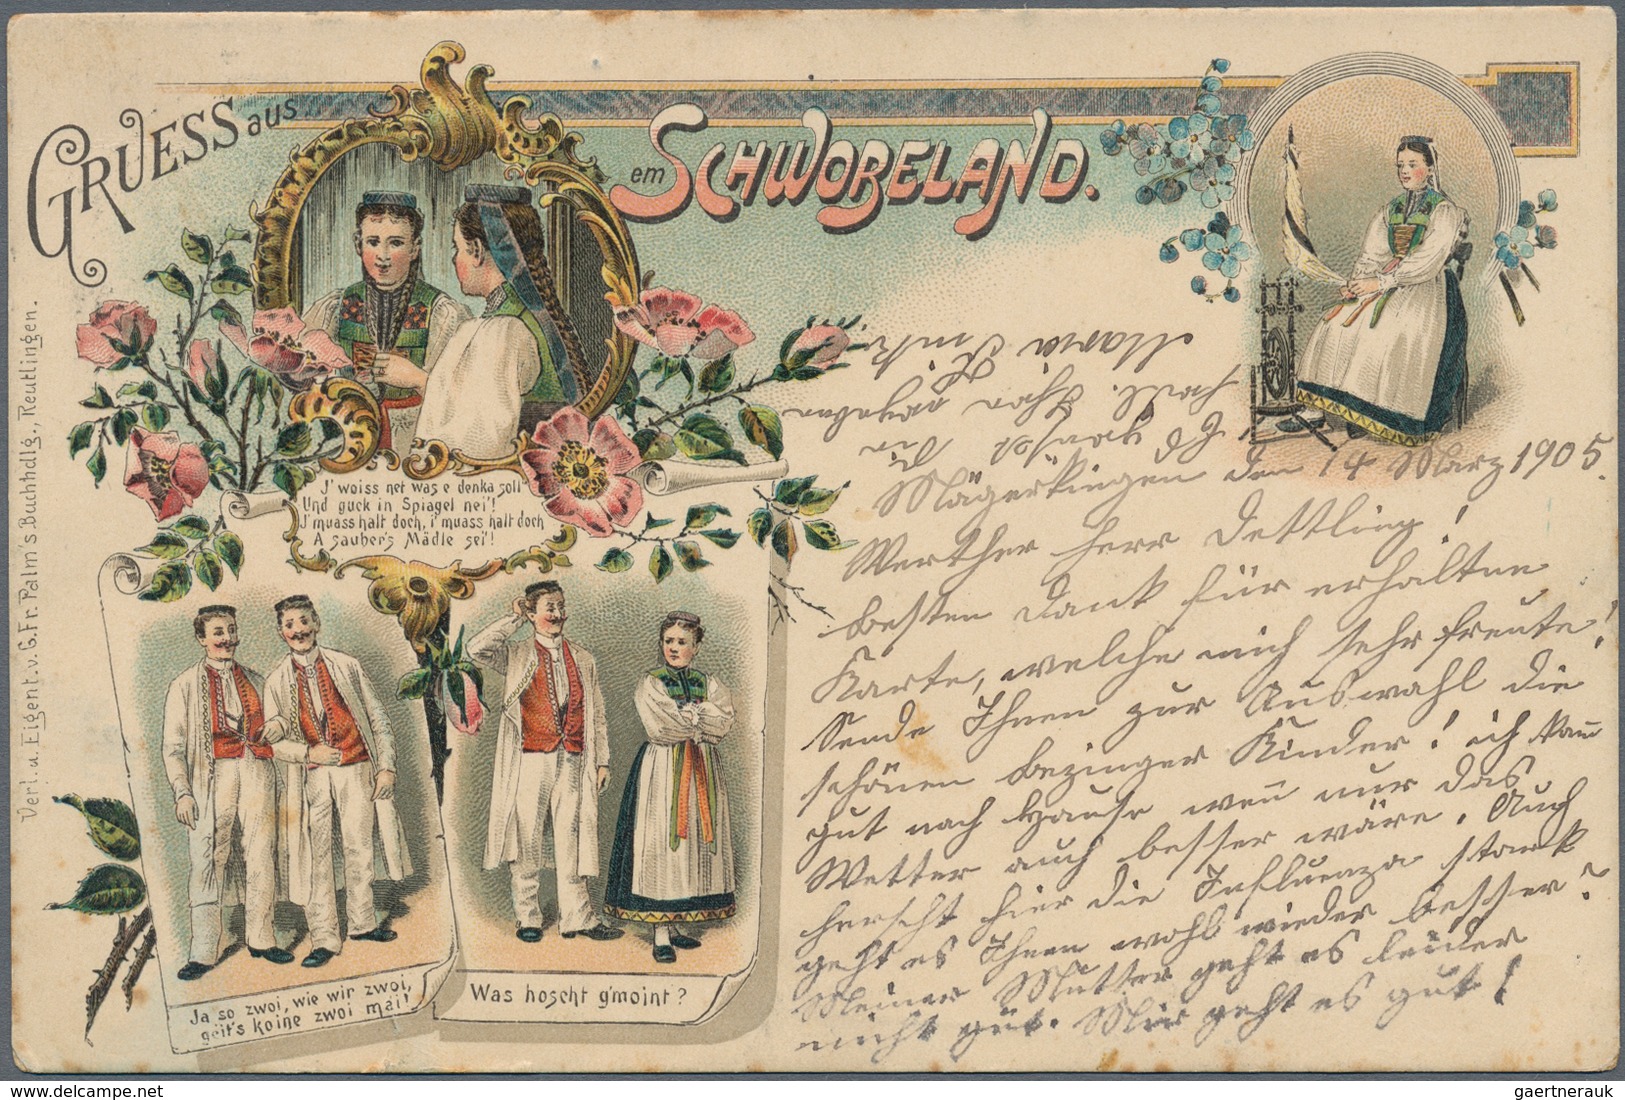 GRUESS aus
em SCHWOBELAND.
Verl. u. Eigent. v. G. Fr. Palm's Buchhdlg., Reutlingen.
J' woiss net was e denka soll
Und guck in Spiagel nei'!
J' muass halt doch, i' muass halt doch
A sauber's Mädle sei'!
Ja so zwoi, wie wir zwoi,
geit's koine zwoi mai!
Was hoscht g'moint?
Mägerkingen den 14 März 1905.
Werther Herr Dettling!
Besten Dank für erhaltene
Karte, welche mich sehr freute!
Sende Ihnen zur Auswahl die
schönen Bezinger Kinder! ich kam
gut nach Hause wen̄ nur das
Wetter auch besser wäre. Auch
herscht hier die Influenza stark
geht es Ihnen wohl wieder besser?
Meiner Mutter geht es leider
nicht gut. Mir geht es gut!
Maria
gaertnerauk